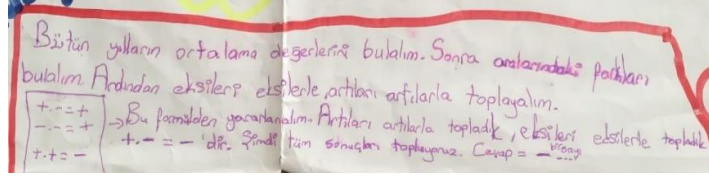 Bütün yılların ortalama değerlerini bulalım. Sonra aralarındaki farkları
bulalım Ardından eksileri eksilerle, artıları artılarla toplayalım.
+.-=+
-.-=+
+.+=-
→ Bu formülden yararlanalım. Artıları artılarla topladık, eksileri eksilerle topladık
+.-=- 'dir. Şimdi tüm sonuçları topluyoruz. Cevap = -